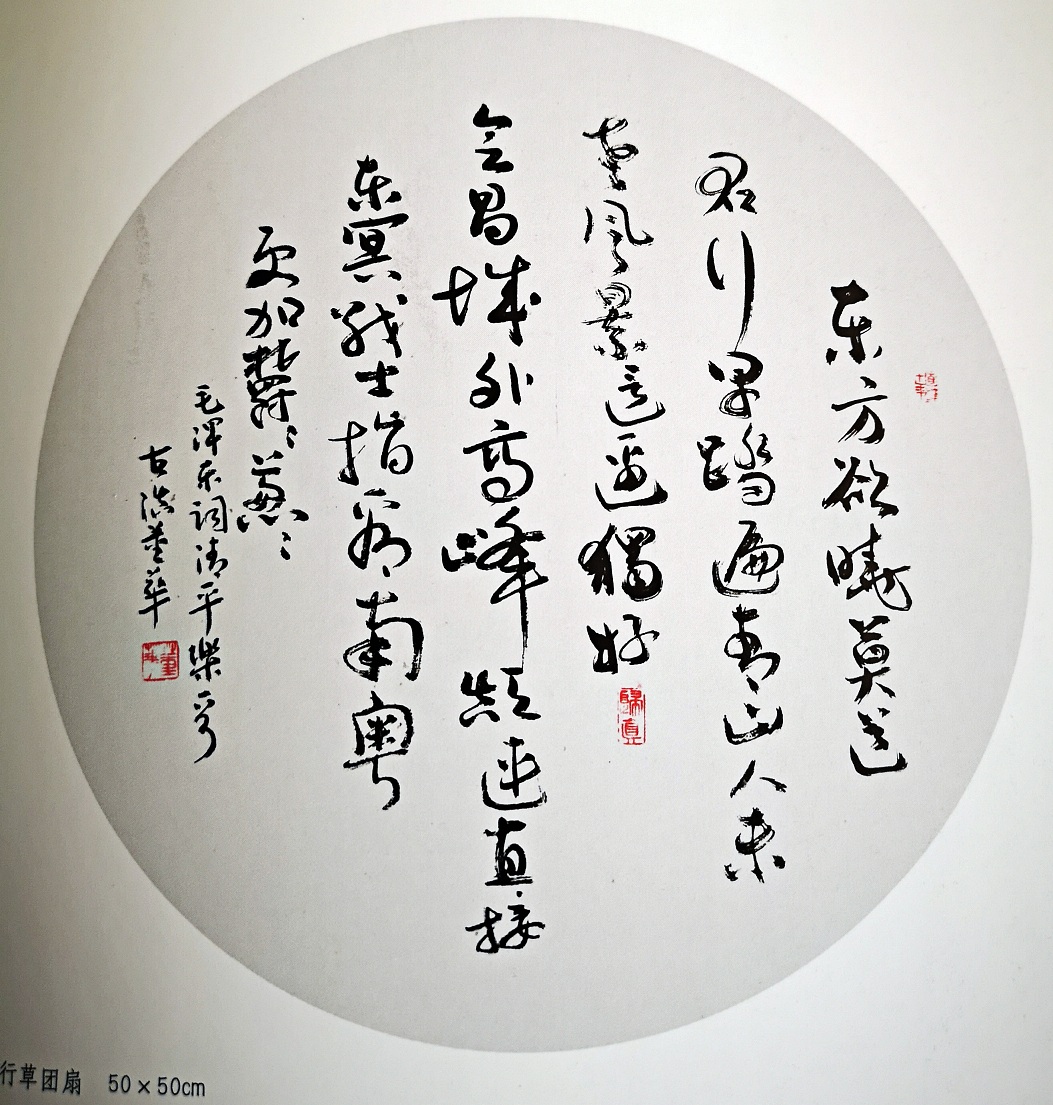 东方欲曉莫道
君行早踏遍青山人未
老风景這邊獨好
歸真
会昌城外高峰颠连直接
东冥战士指看南粤
更加鬱〻葱〻
毛泽东词清平樂一首
古 董華
行草团扇 50×50cm